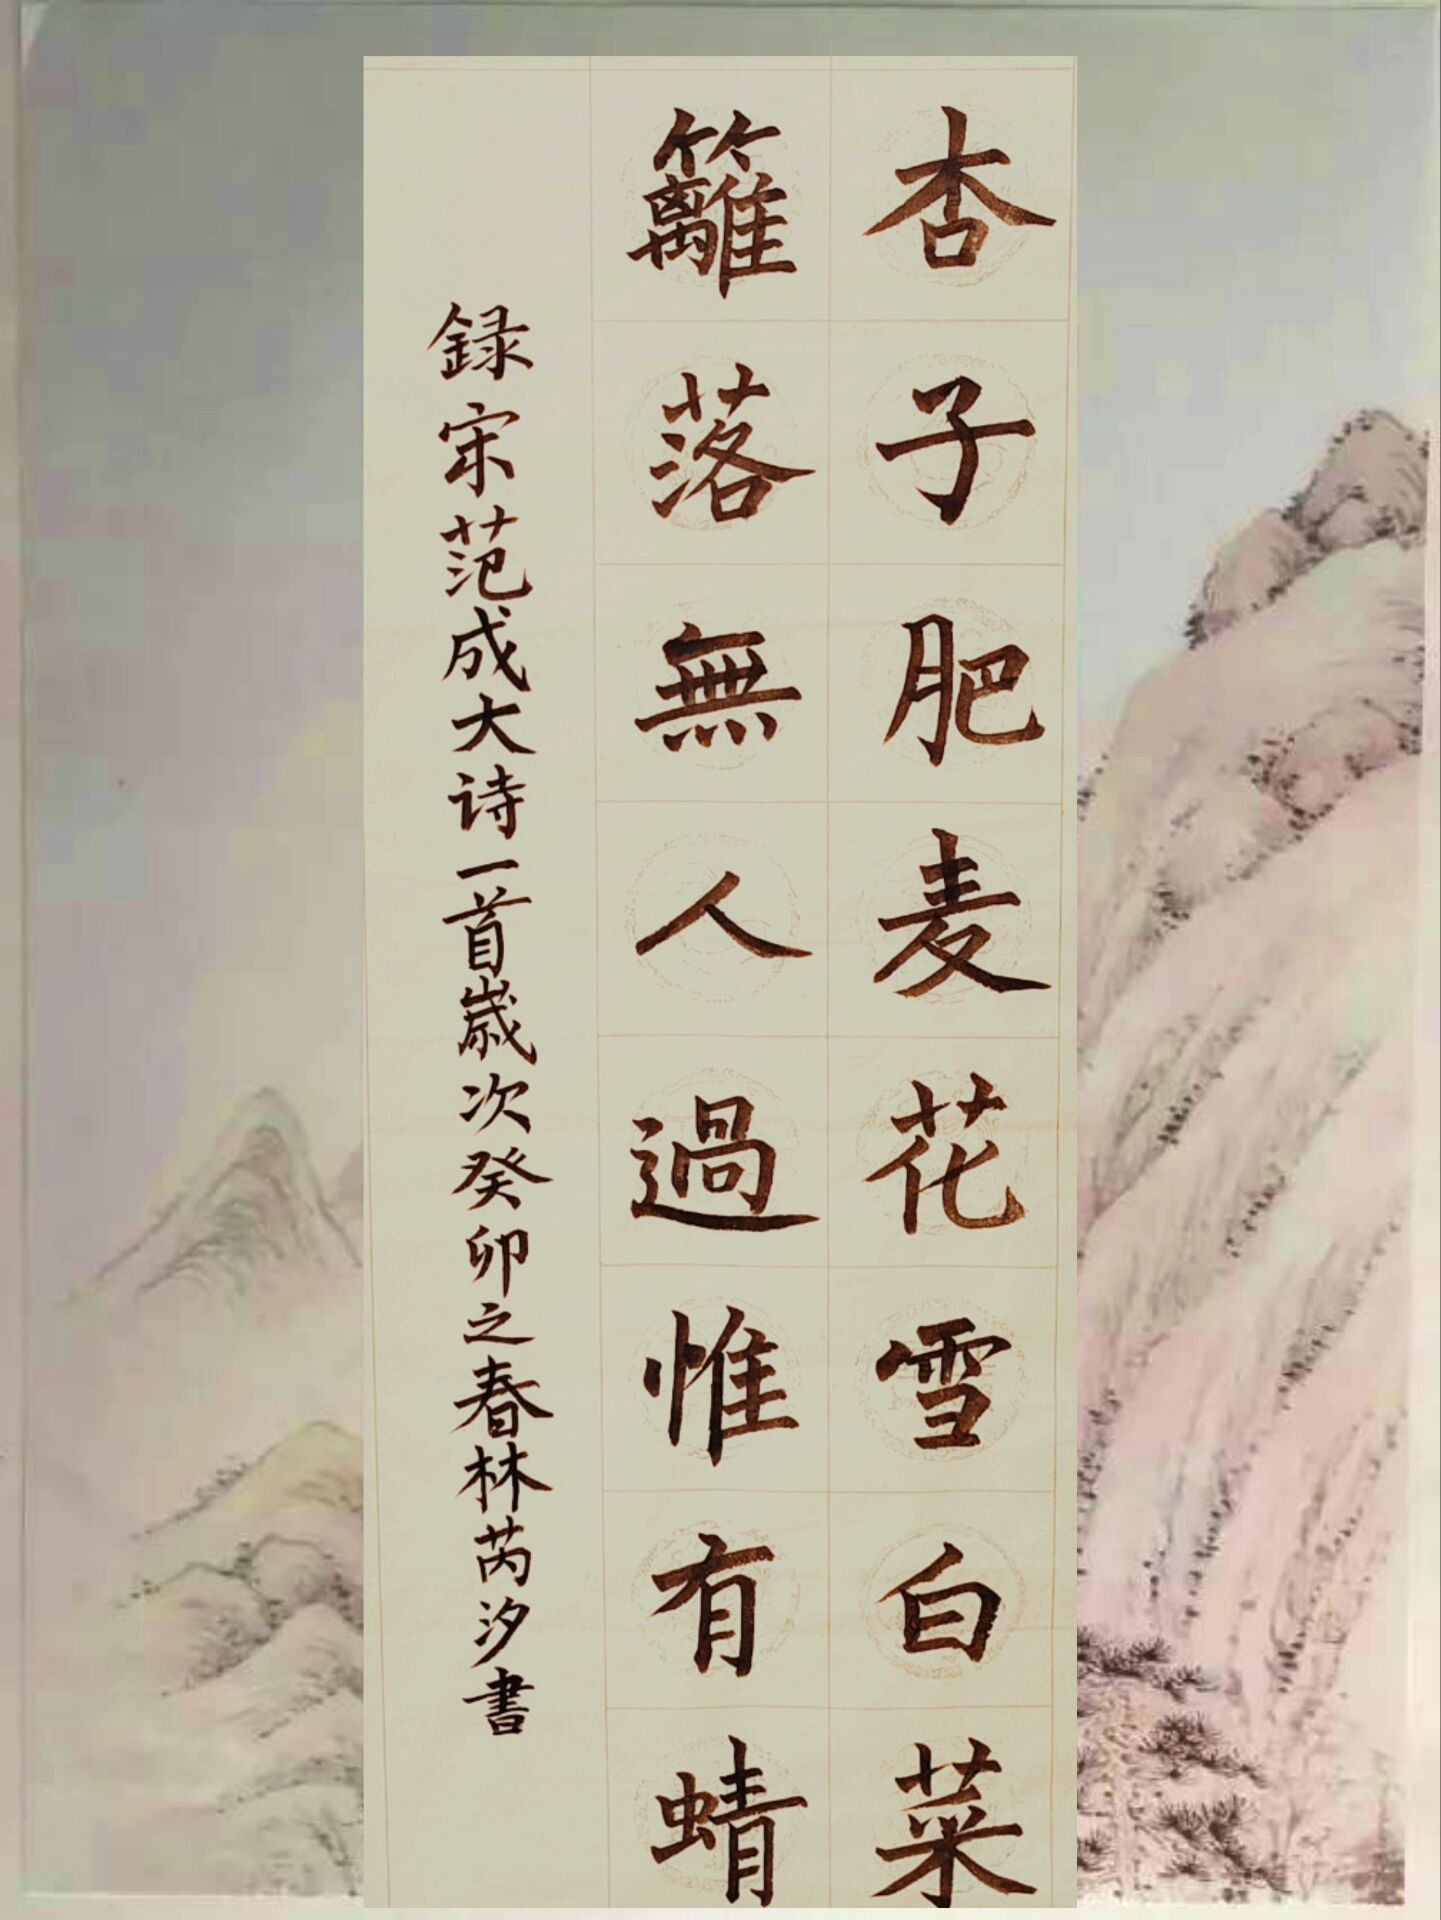 杏子肥麦花雪白菜
籬落無人過惟有蜻
録宋范成大诗一首歲次癸卯之春林芮汐書